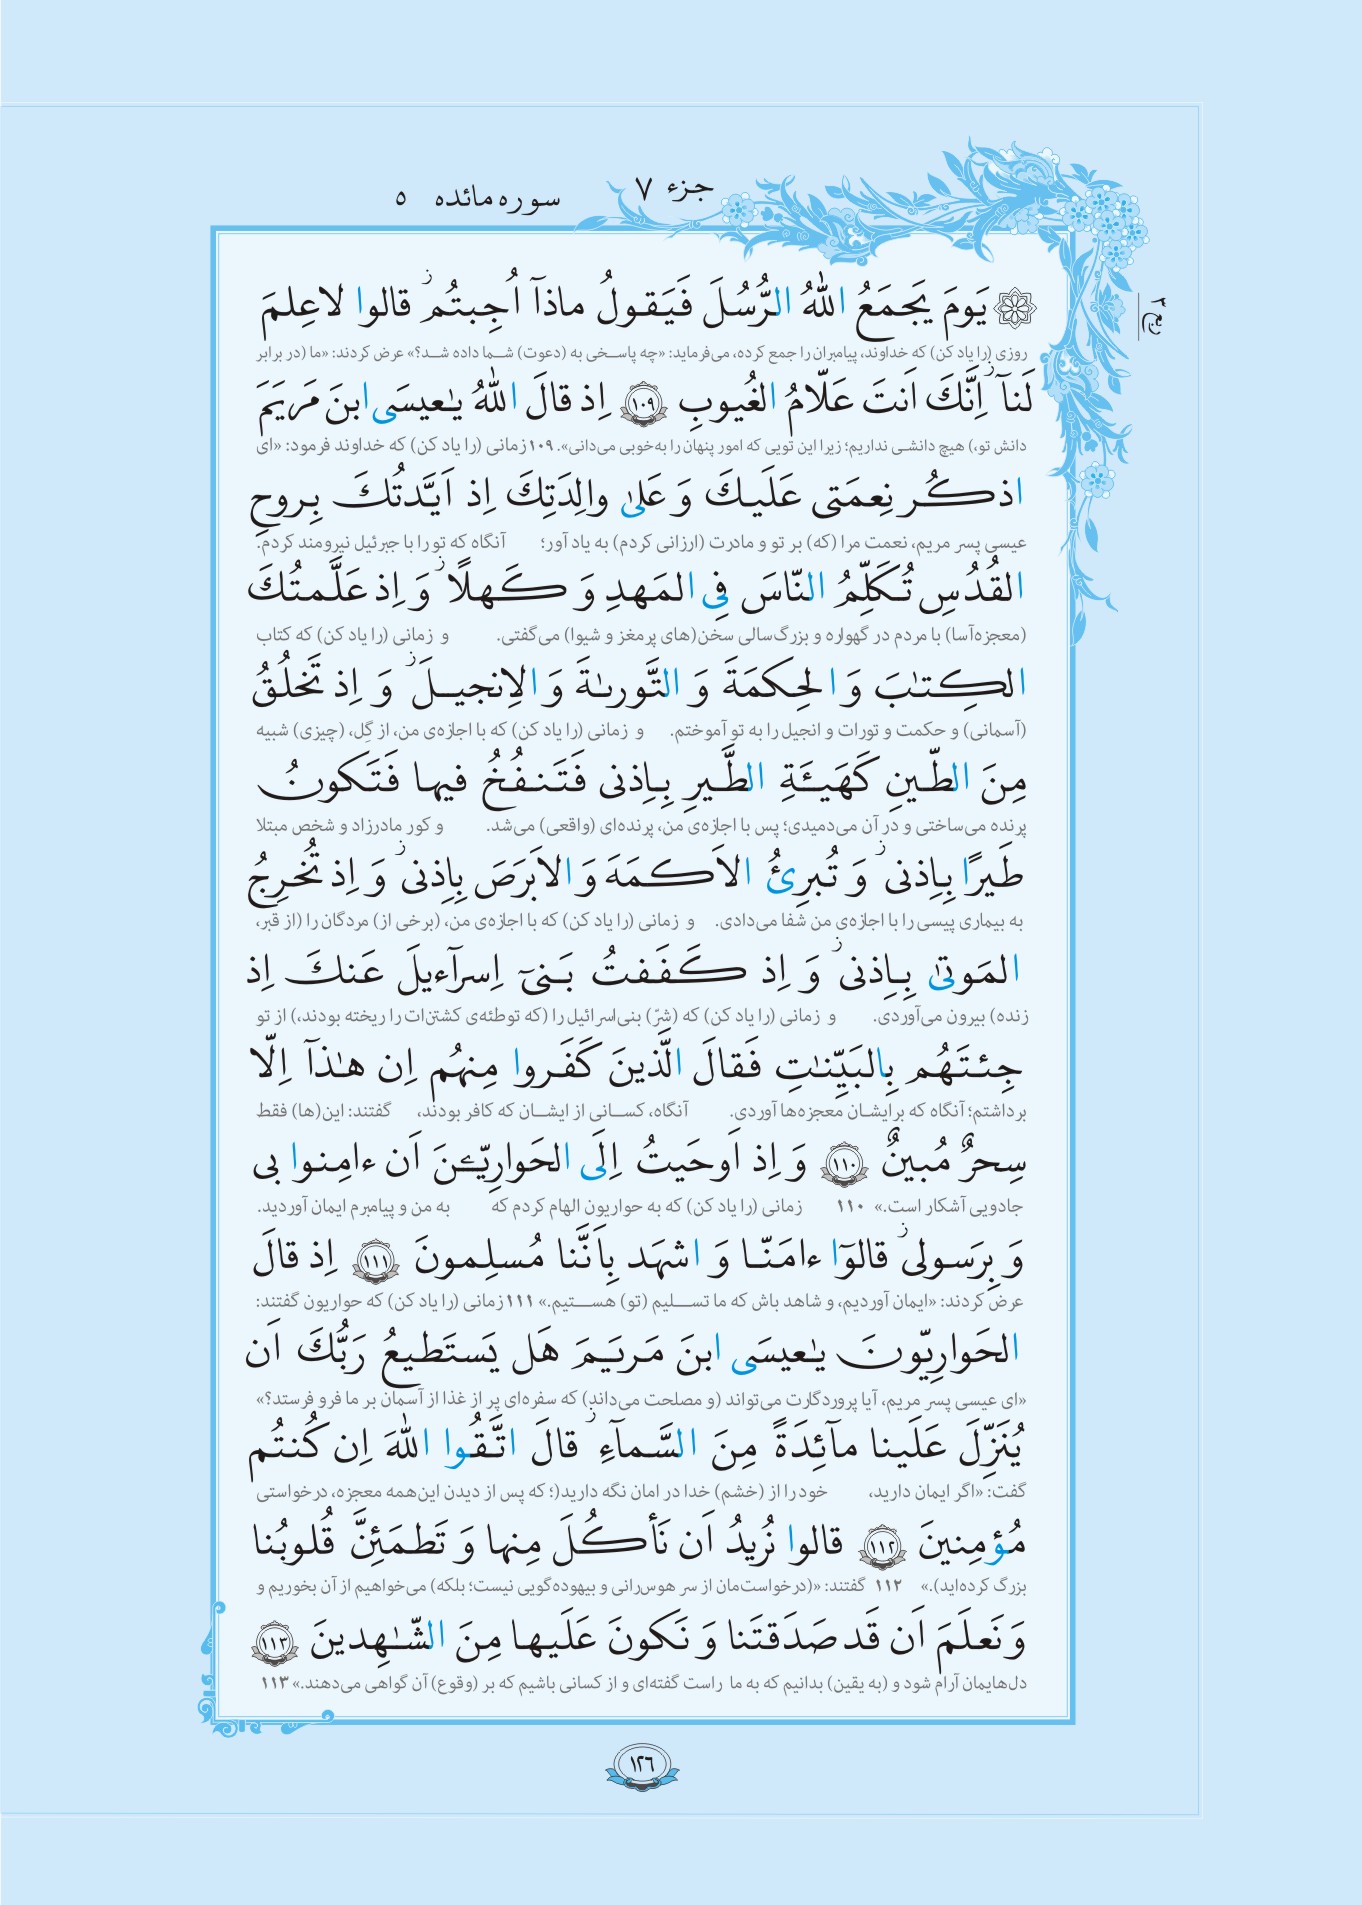 جزء ۷
سوره مائده ۵
ربع ۳
يَومَ يَجمَعُ اللّٰهُ الرُّسُلَ فَيَقولُ ماذآ اُجِبتُم ز قالوا لاعِلمَ
روزی (را یاد کن) که خداوند، پیامبران را جمع کرده، می‌فرماید: «چه پاسخی به (دعوت) شما داده شد؟» عرض کردند: «ما (در برابر
لَنآ ز اِنَّكَ اَنتَ عَلّامُ الغُيوبِ ۱۰۹ اِذ قالَ اللّٰهُ يٰعيسَى ابنَ مَريَمَ
دانش تو،) هیچ دانشی نداریم؛ زیرا این تویی که امور پنهان را به‌خوبی می‌دانی». ۱۰۹ زمانی (را یاد کن) که خداوند فرمود: «ای
اذكُر نِعمَتى عَلَيكَ وَ عَلىٰ والِدَتِكَ اِذ اَيَّدتُكَ بِروحِ
عیسی پسر مریم، نعمت مرا (که) بر تو و مادرت (ارزانی کردم) به یاد آور؛ آنگاه که تو را با جبرئیل نیرومند کردم.
القُدُسِ تُكَلِّمُ النّاسَ فِى المَهدِ وَ كَهلًا ز وَ اِذ عَلَّمتُكَ
(معجزه‌آسا) با مردم در گهواره و بزرگ‌سالی سخن(های پرمغز و شیوا) می‌گفتی. و زمانی (را یاد کن) که کتاب
الكِتٰبَ وَ الحِكمَةَ وَ التَّورىٰةَ وَ الاِنجيلَ ز وَ اِذ تَخلُقُ
(آسمانی) و حکمت و تورات و انجیل را به تو آموختم. و زمانی (را یاد کن) که با اجازه‌ی من، از گِل، (چیزی) شبیه
مِنَ الطّينِ كَهَيـَٔةِ الطَّيرِ بِاِذنى فَتَنفُخُ فيها فَتَكونُ
پرنده می‌ساختی و در آن می‌دمیدی؛ پس با اجازه‌ی من، پرنده‌ای (واقعی) می‌شد. و کور مادرزاد و شخص مبتلا
طَيرًا بِاِذنى ز وَ تُبرِئُ الاَكمَهَ وَ الاَبرَصَ بِاِذنى ز وَ اِذ تُخرِجُ
به بیماری پیسی را با اجازه‌ی من شفا می‌دادی. و زمانی (را یاد کن) که با اجازه‌ی من، (برخی از) مردگان را (از قبر،
المَوتىٰ بِاِذنى ز وَ اِذ كَفَفتُ بَنىٓ اِسرآءيلَ عَنكَ اِذ
زنده) بیرون می‌آوردی. و زمانی (را یاد کن) که (شرّ) بنی‌اسرائیل را (که توطئه‌ی کشتن‌ات را ریخته بودند،) از تو
جِئتَهُم بِالبَيِّنٰتِ فَقالَ الَّذينَ كَفَروا مِنهُم اِن هٰذآ اِلّا
برداشتم؛ آنگاه که برایشان معجزه‌ها آوردی. آنگاه، کسانی از ایشان که کافر بودند، گفتند: این(ها) فقط
سِحرٌ مُبينٌ ۱۱۰ وَ اِذ اَوحَيتُ اِلَى الحَوارِيّـۧنَ اَن ءامِنوا بى
جادویی آشکار است.» ۱۱۰ زمانی (را یاد کن) که به حواریون الهام کردم که به من و پیامبرم ایمان آوردید.
وَ بِرَسولى ز قالوٓا ءامَنّا وَ اشهَد بِاَنَّنا مُسلِمونَ ۱۱۱ اِذ قالَ
عرض کردند: «ایمان آوردیم، و شاهد باش که ما تسلیم (تو) هستیم.» ۱۱۱ زمانی (را یاد کن) که حواریون گفتند:
الحَوارِيّونَ يٰعيسَى ابنَ مَريَمَ هَل يَستَطيعُ رَبُّكَ اَن
«ای عیسی پسر مریم، آیا پروردگارت می‌تواند (و مصلحت می‌داند) که سفره‌ای پر از غذا از آسمان بر ما فرو فرستد؟»
يُنَزِّلَ عَلَينا مآئِدَةً مِنَ السَّمآءِ ز قالَ اتَّقُوا اللّٰهَ اِن كُنتُم
گفت: «اگر ایمان دارید، خود را از (خشم) خدا در امان نگه دارید(؛ که پس از دیدن این‌همه معجزه، درخواستی
مُؤمِنينَ ۱۱۲ قالوا نُريدُ اَن نَأكُلَ مِنها وَ تَطمَئِنَّ قُلوبُنا
بزرگ کرده‌اید).» ۱۱۲ گفتند: «(درخواست‌مان از سر هوس‌رانی و بیهوده‌گویی نیست؛ بلکه) می‌خواهیم از آن بخوریم و
وَ نَعلَمَ اَن قَد صَدَقتَنا وَ نَكونَ عَلَيها مِنَ الشّٰهِدينَ ۱۱۳
دل‌هایمان آرام شود و (به یقین) بدانیم که به ما راست گفته‌ای و از کسانی باشیم که بر (وقوع) آن گواهی می‌دهند.» ۱۱۳
۱۲۶